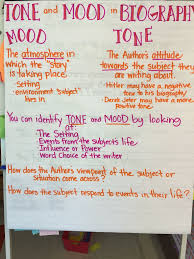 TONE and MOOD in BIOGRAPHY
MOOD
The atmosphere in
which the "story"
is taking place.
- Setting
- environment subject
lives in
TONE
The Author's attitude
towards the subject they
are writing about.
- Hitler may have a negative
tone to his biography
- Derek Jeter may have a more
positive tone
You can identify TONE and MOOD by looking
at:
The Setting
Events from the subjects life
Influence or Power
Word Choice of the writer
How does the Author's viewpoint of the subject or
situation come across?
How does the subject respond to events in their life?